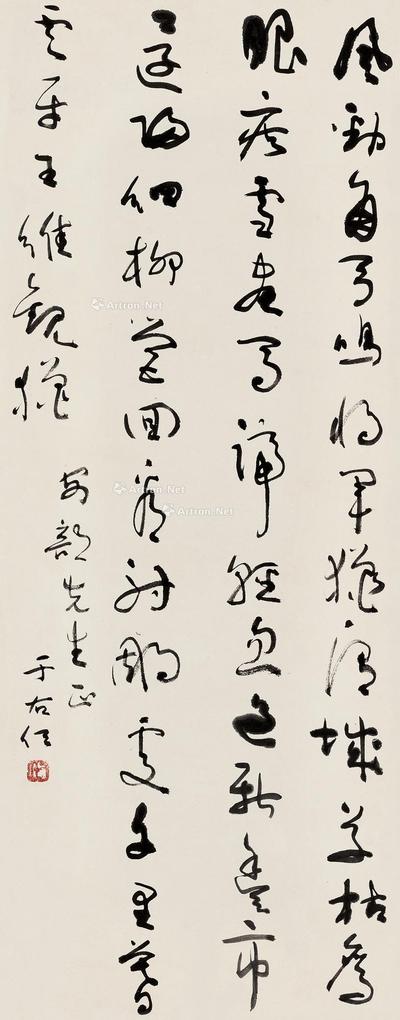 風勁角弓鳴將軍獵渭城草枯鷹
眼疾雪盡馬蹄輕忽過新豐市
還歸細柳營回看射鵰處千里暮
雲平王維觀獵
先生正
于右任
Artron.Net
Artron.Net
Artron.Net